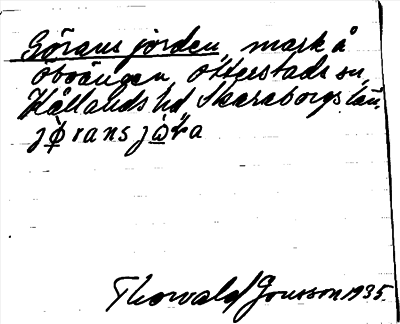 Görans jorden, mark å
Öboängen, Otterstads sn,
Kållands hd, Skaraborgs län.
jo̲rans jo̲ra
Thorvald Jonsson 1935.